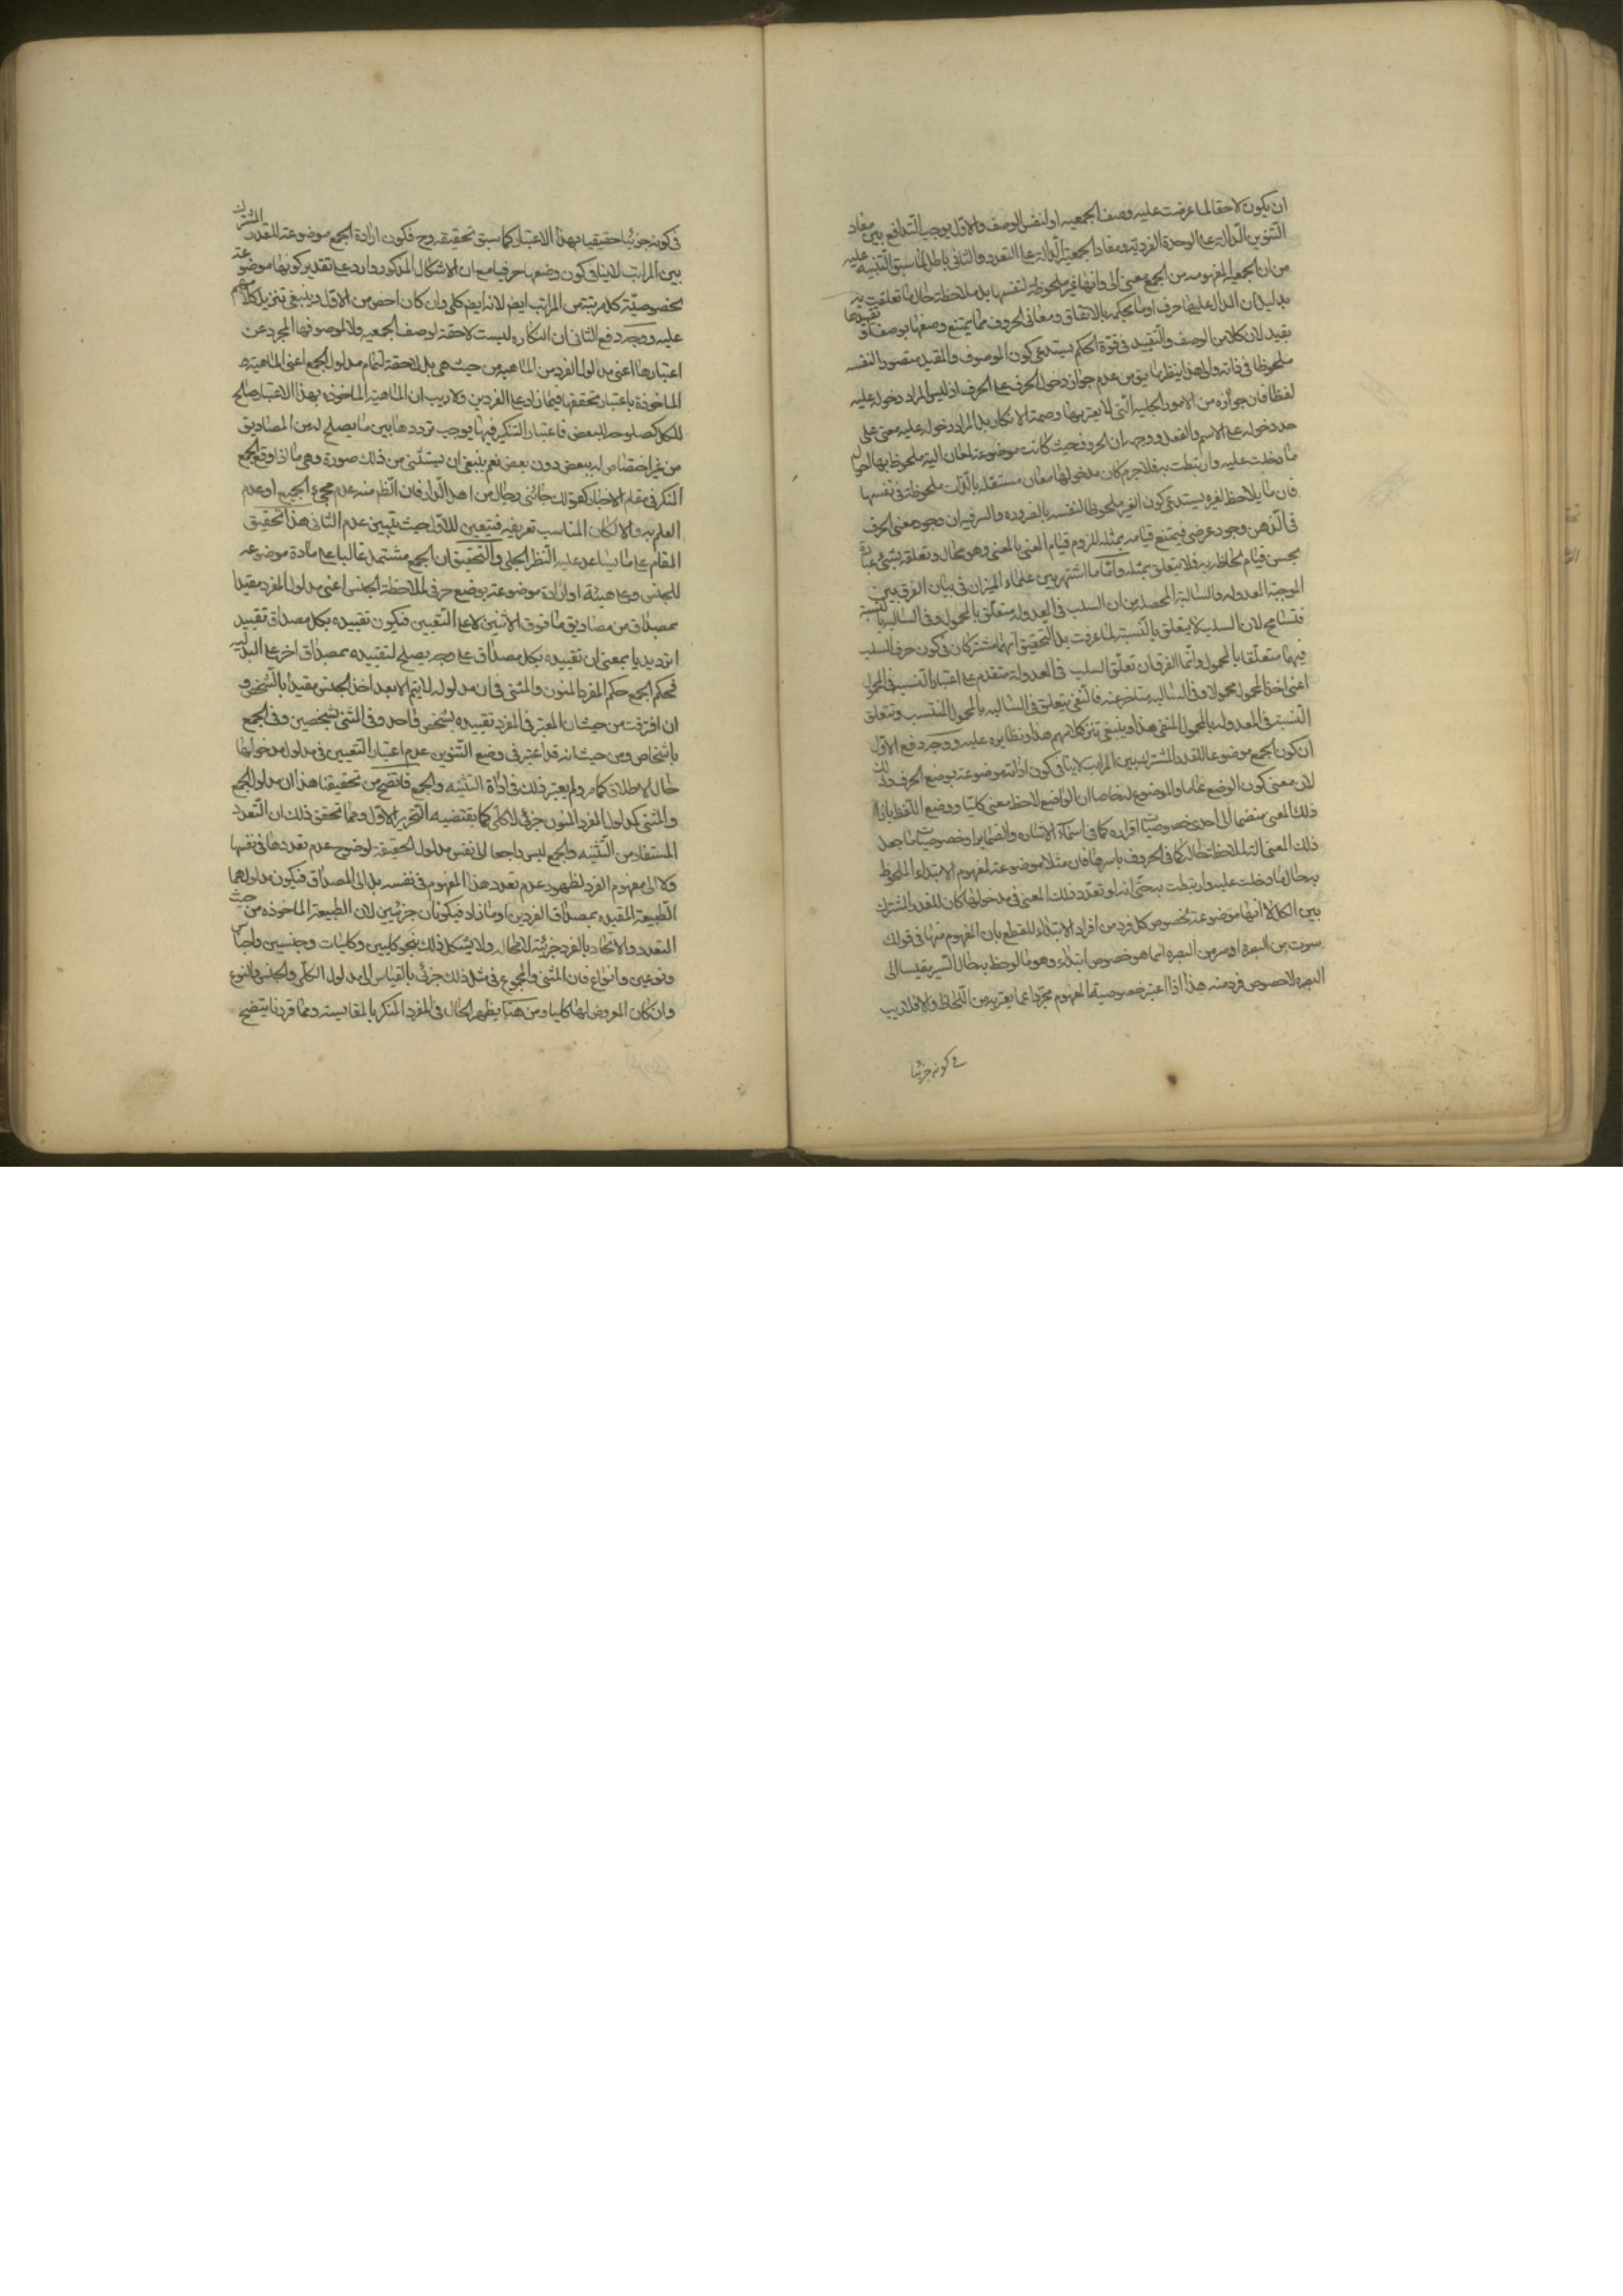 ان يكون لاحقا لما عرضت عليه وصف الجمعيه او لنفس الوصف والاول يوجب التدافع بين مفاد
التنوين الدالة على الوحدة الفردية ومفاد الجمعية الدالة على التعدد والثانى باطل لما سبق التنبيه عليه
من ان الجمعية المفهومه من الجمع معنى آلى وانها غير ملحوظة لنفسها بل ملاحظة حال ما تعلقت به
بدليل ان الدال عليها حرف او ما بحكمه بالاتفاق ومعانى الحروف مما يمتنع وصفها بوصف او تقييدها
بقيد لان كلا من الوصف والتقييد فى قوة الحكم يستدعى كون الموصوف والمقيد متصورا لنفسه
ملحوظا فى ذاته والى هذا ينظر ما يق من عدم جواز دخول الحرف على الحرف اذ ليس المراد دخوله عليه
لفظا فان جوازه من الامور الجلية التى لا يعتريها وصمة الانكار بل المراد دخوله عليه معنى على
حد دخوله على الاسم والفعل ووجهه ان الحروف حيث كانت موضوعة لمعان آلية ملحوظ بها حال
ما دخلت عليه وارتبطت به فلا جرم كان مدخولها معان مستقلة بالذات ملحوظة فى نفسها
فان ما يلاحظ لغيره يستدعى كون الغير ملحوظا لنفسه بالضروره والسر فيه ان وجود معنى الحرف
فى الذهن وجود عرضى فيمتنع قيامه بمثله للزوم قيام المعنى بالمعنى وهو محال وتعلقه بشئ عبارة
عن قيام لحاظه به فلا يتعلق بمثله واما ما اشتهر بين علماء الميزان فى بيان الفرق بين
الموجبة المعدوله والسالبة المحصله من ان السلب فى المعدوله متعلق بالمحمول وفى السالبة بالنسبة
فتسامح لان السلب لا يتعلق بالنسبة لما عرفت بل التحقيق انهما مشتركان فى كون حرف السلب
فيهما متعلقا بالمحمول وانما الفرق ان تعلق السلب فى المعدولة متقدم على اعتبار النسبة فى المحمول
اعنى اخذ المحمول محمولا وفى السالبه متاخر عنه فالنفى يتعلق فى السالبه بالمحمول المنتسب وتتعلق
النسبة فى المعدوله بالمحمول المنفى هذا وينبغى تنزيل كلامهم هذا ونظايره عليه ووجه دفع الاول
ان كون الجمع موضوعا للقدر المشترك بين المراتب لا ينافى كون اداته موضوعة بوضع الحرف وذلك
لان معنى كون الوضع عاما والموضوع له خاصا ان الواضع لاحظ معنى كليا ووضع اللفظ بازاء
ذلك المعنى منضما الى احدى خصوصيات افراده كما فى اسماء الاشاره والضماير او خصوصيات ما جعل
ذلك المعنى آلة لملاحظة حاله كما فى الحروف باسرها فان من مثلا موضوعة لمفهوم الابتداء الملحوظ
به حال ما دخلت عليه وارتبطت به حتى انه لو تعدد ذلك المعنى فى مدخولها كان للقدر المشترك
بين الكل لا انها موضوعة لخصوص كل فرد من افراد الابتداء للقطع بان المفهوم منها فى قولك
سرت من البصرة او سر من البصره انما هو خصوص ابتداء وهو ما لوحظ به حال السير مقيسا الى
البصره لا خصوص فرد منه هذا اذا اعتبر خصوصية المفهوم مجردا عما يعتريه من اللحاظ والا فلا ريب
فى كونه جزئيا
فى كونه جزئيا حقيقيا بهذا الاعتبار كما سبق تحقيقه وح فكون اداة الجمع موضوعة للقدر المشترك
بين المراتب لا ينافى كون وضعها حرفيا مع ان الاشكال المذكور وارد على تقدير كونها موضوعة
لخصوصية كل مرتبة من المراتب ايض لانه ايض كلى وان كان اخص من الاول وينبغى تنزيل كلامهم
عليه ووجه دفع الثانى ان النكاره ليست لاحقة لوصف الجمعيه ولا لموصوفها المجرد عن
اعتبارها اعنى مدلول المفرد من الماهية من حيث هى بل لاحقة لتمام مدلول الجمع اعنى الماهية
الماخوذة باعتبار تحققها فيما زاد على الفردين ولا ريب ان الماهية الماخوذه بهذا الاعتبار صالح
للكل كصلوحه للبعض فاعتبار التنكير فيها يوجب ترددها بين ما يصلح له من المصاديق
من غير اختصاص له ببعض دون بعض نعم ينبغى ان يستثنى من ذلك صورة وهى ما اذا وقع الجمع
المنكر فى مقام الاخبار كقولك جائنى رجال من اهل الدار فان الظ منه عدم مجئ الجميع او عدم
العلم به والا لكان المناسب تعريفه فيتعين للاول حيث يتبين عدم الثانى هذا تحقيق
المقام على ما يساعد عليه النظر الجلى والتحقيق ان الجمع مشتمل غالبا على مادة موضوعه
للجنس وعلى هيئة او اداة موضوعة بوضع حرفى لملاحظة الجنس اعنى مدلول المفرد مقيدا
بمصداق من مصاديق ما فوق الاثنين لا على التعيين فيكون تقييده بكل مصداق تقييد
ا ترديديا بمعنى ان تقييده بكل مصداق على وجه يصلح لتقييده بمصداق اخر على البدليه
فحكم الجمع حكم المفرد المنون والمثنى فى ان مدلوله لا يتم الا بعد اخذ الجنس مقيدا بالشخص و
ان افترقت من حيث ان المعتبر فى المفرد تقييده بشخص واحد وفى المثنى بشخصين وفى الجمع
باشخاص ومن حيث انه قد اعتبر فى وضع التنوين عدم اعتبار التعيين فى مدلول مدخولها
حال الاطلاق كما مر ولم يعتبر ذلك فى اداة التثنيه والجمع فاتضح من تحقيقنا هذا ان مدلول الجمع
والمثنى كمدلول المفرد المنون جزئى لا كلى كما يقتضيه التحرير الاول ومما تحقق ذلك ان التعدد
المستفاد من التثنيه والجمع ليس راجعا الى نفس مدلول الحقيقة لوضوح عدم تعددها فى نفسها
ولا الى مفهوم الفرد لظهور عدم تعدد هذا المفهوم فى نفسه بل الى المصداق فيكون مدلولهما
الطبيعة المقيده بمصداق الفردين او ما زاد فيكونان جزئيين لان الطبيعة الماخوذه من حيث
التعدد والاتحاد بالفرد جزئية لا محاله ولا يشكل ذلك بنحو كليين وكليات وجنسين واجناس
ونوعين وانواع فان المثنى والمجموع فى مثل ذلك جزئى بالقياس الى مدلول الكلى والجنس والنوع
وان كان المعروض لها كليا ومن هنا يظهر الحال فى المفرد المنكر بالمقايسة ومما قررنا يتضح